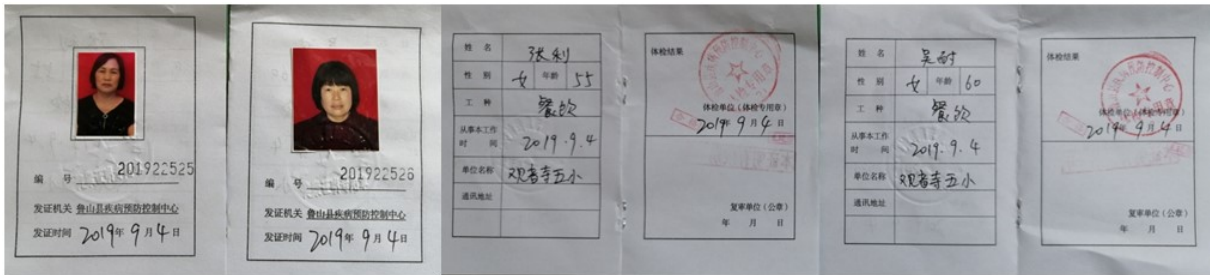 编 号 201922525
发证机关 鲁山县疾病预防控制中心
发证时间 2019年 9月4日
编 号 201922526
发证机关 鲁山县疾病预防控制中心
发证时间 2019年 9月4日
姓 名 张利
性 别 女 年龄 55
工 种 餐饮
从事本工作
时 间 2019.9.4
单位名称 观音寺五小
通讯地址
体检结果
体检单位（体检专用章）
2019年 9月4日
复审单位（公章）
年 月 日
姓 名 吴耐
性 别 女 年龄 60
工 种 餐饮
从事本工作
时 间 2019.9.4
单位名称 观音寺五小
通讯地址
体检结果
体检单位（体检专用章）
2019年 9月4日
复审单位（公章）
年 月 日